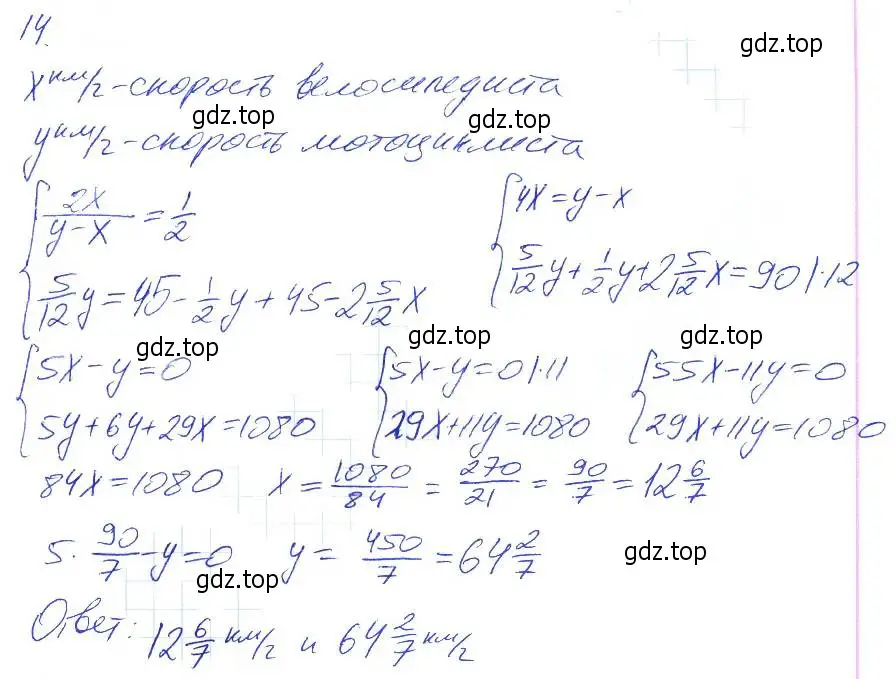 14.
gdz.top
x км/г - скорость велосипедиста
gdz.top gdz.top
y км/г - скорость мотоциклиста
{ 2x/(y-x) = 1/2
{ 5/12 y = 45 - 1/2 y + 45 - 2 5/12 x
{ 4x = y - x
{ 5/12 y + 1/2 y + 2 5/12 x = 90 | · 12
gdz.top gdz.top gdz.top
{ 5x - y = 0
{ 5y + 6y + 29x = 1080
{ 5x - y = 0 | · 11
{ 29x + 11y = 1080
{ 55x - 11y = 0
{ 29x + 11y = 1080
84x = 1080 x = 1080/84 = 270/21 = 90/7 = 12 6/7
5 · 90/7 - y = 0 y = 450/7 = 64 2/7
gdz.top gdz.top
Ответ: 12 6/7 км/г и 64 2/7 км/г